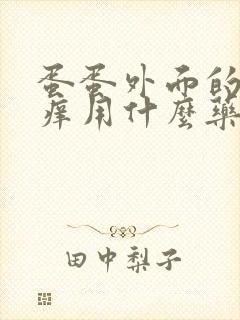 蛋蛋外面的
痒用什麼藥
田中梨子